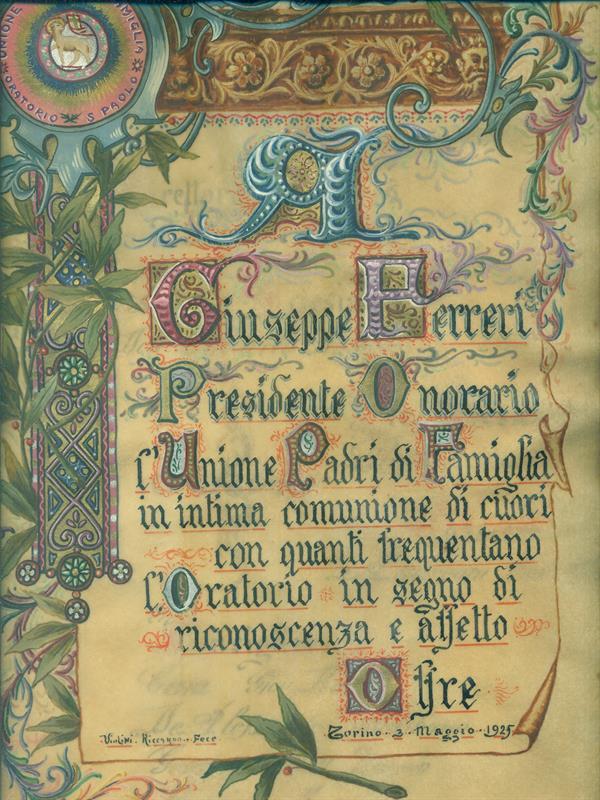 UNIONE
AMIGLIA
ORATORIO S PAOLO
A
Giuseppe Ferreri
Presidente Onorario
l'Unione Padri di Famiglia
in intima comunione di cuori
con quanti frequentano
l'Oratorio in segno di
riconoscenza e affetto
Offre
Violini. Riccardo. Fece
Torino. 3. Maggio. 1925